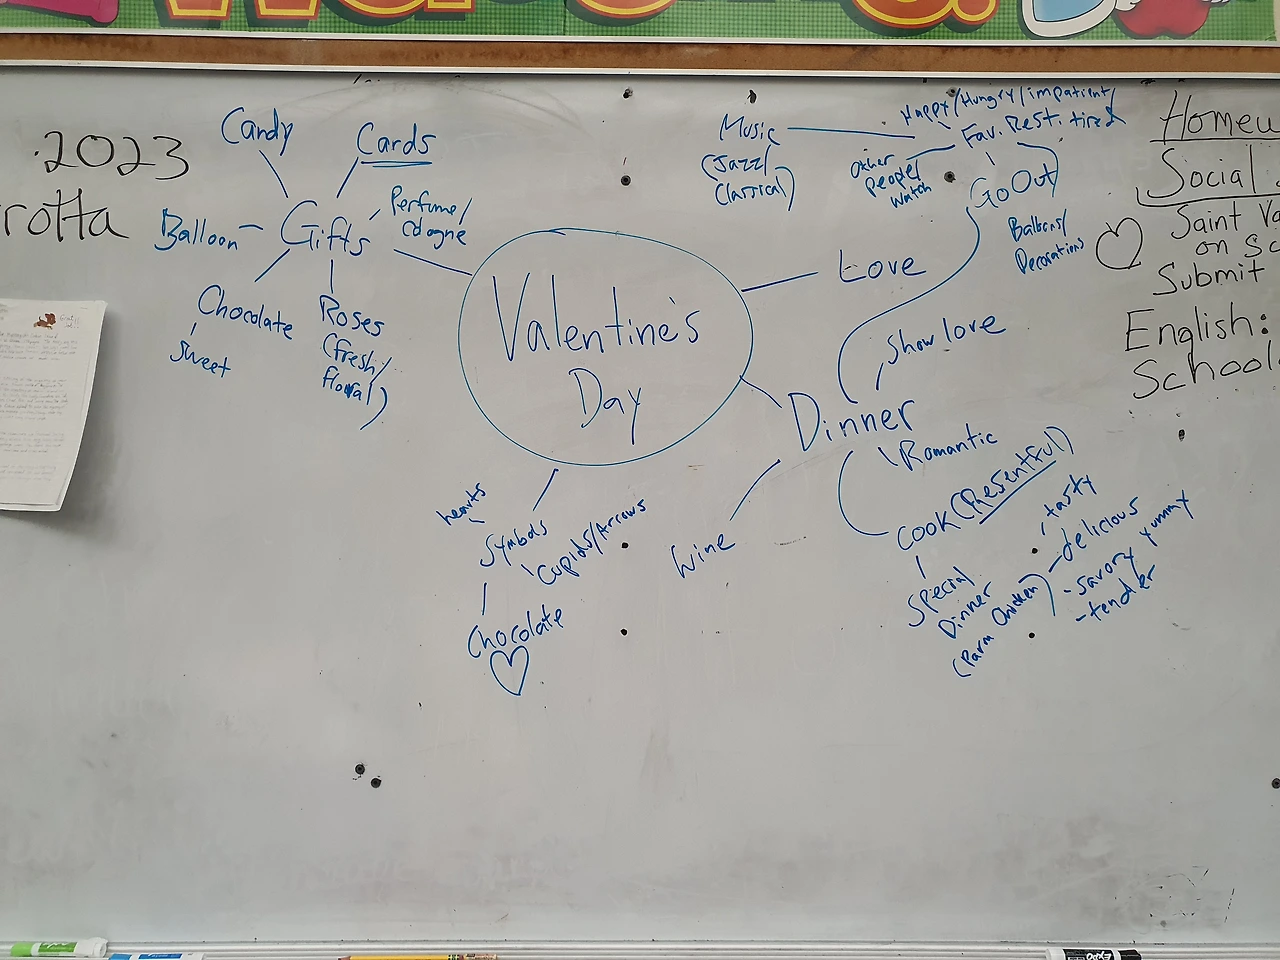 2023
rotta
Candy
Cards
Balloon
Gifts
Perfume/
Cologne
Chocolate
Sweet
Roses
(fresh/
floral)
Valentine's
Day
Love
Music
(Jazz/
Classical)
Happy/Hungry/impatient/
tired
Fav. Rest.
Other
people/
watch
Go Out
Balloons/
Decorations
show love
Dinner
Romantic
Wine
Cook (Presentful)
Special
Dinner
(Parm Chicken)
tasty
-delicious
yummy
-savory
-tender
hearts
Symbols
Cupids/Arrows
Chocolate
Homew
Social
Saint Va
on Sc
Submit
English:
School